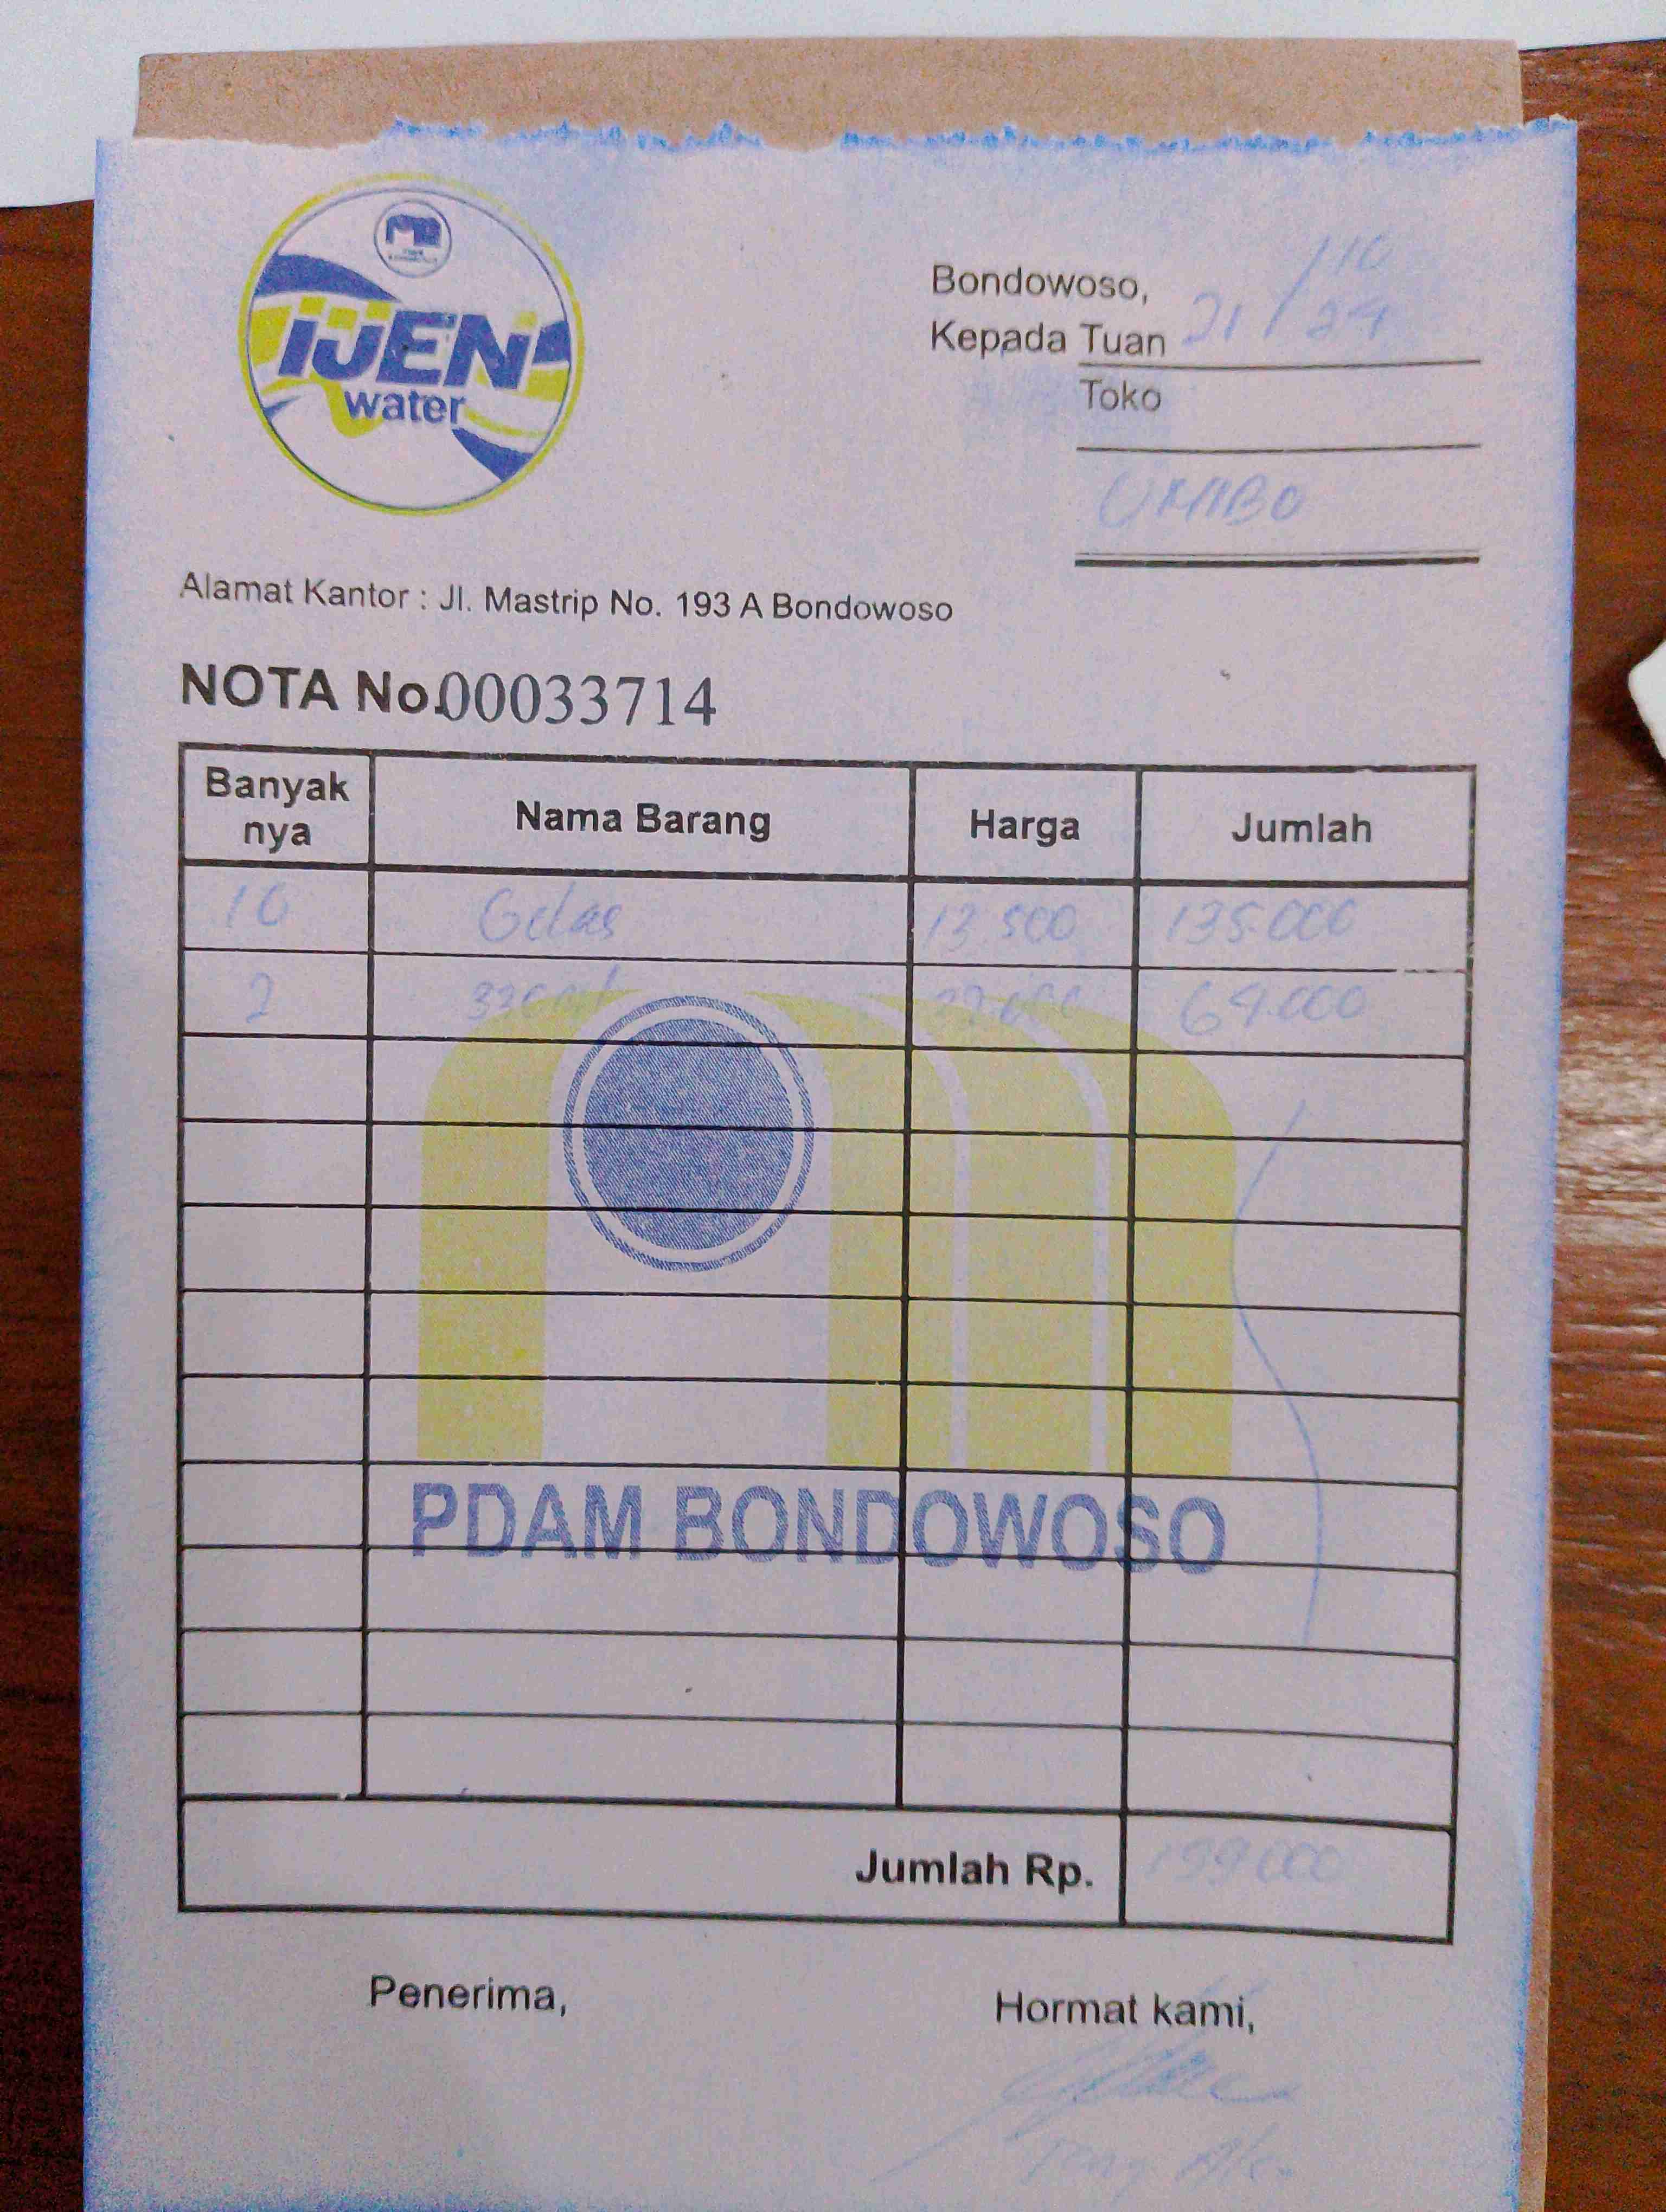 IJEN
water
Bondowoso, 21/10/24
Kepada Tuan
Toko
UMIBO
Alamat Kantor : Jl. Mastrip No. 193 A Bondowoso
NOTA No. 00033714
Banyak nya Nama Barang Harga Jumlah
10 Gelas 13.500 135.000
2 330 ml 64.000
PDAM BONDOWOSO
Jumlah Rp. 199.000
Penerima, Hormat kami,